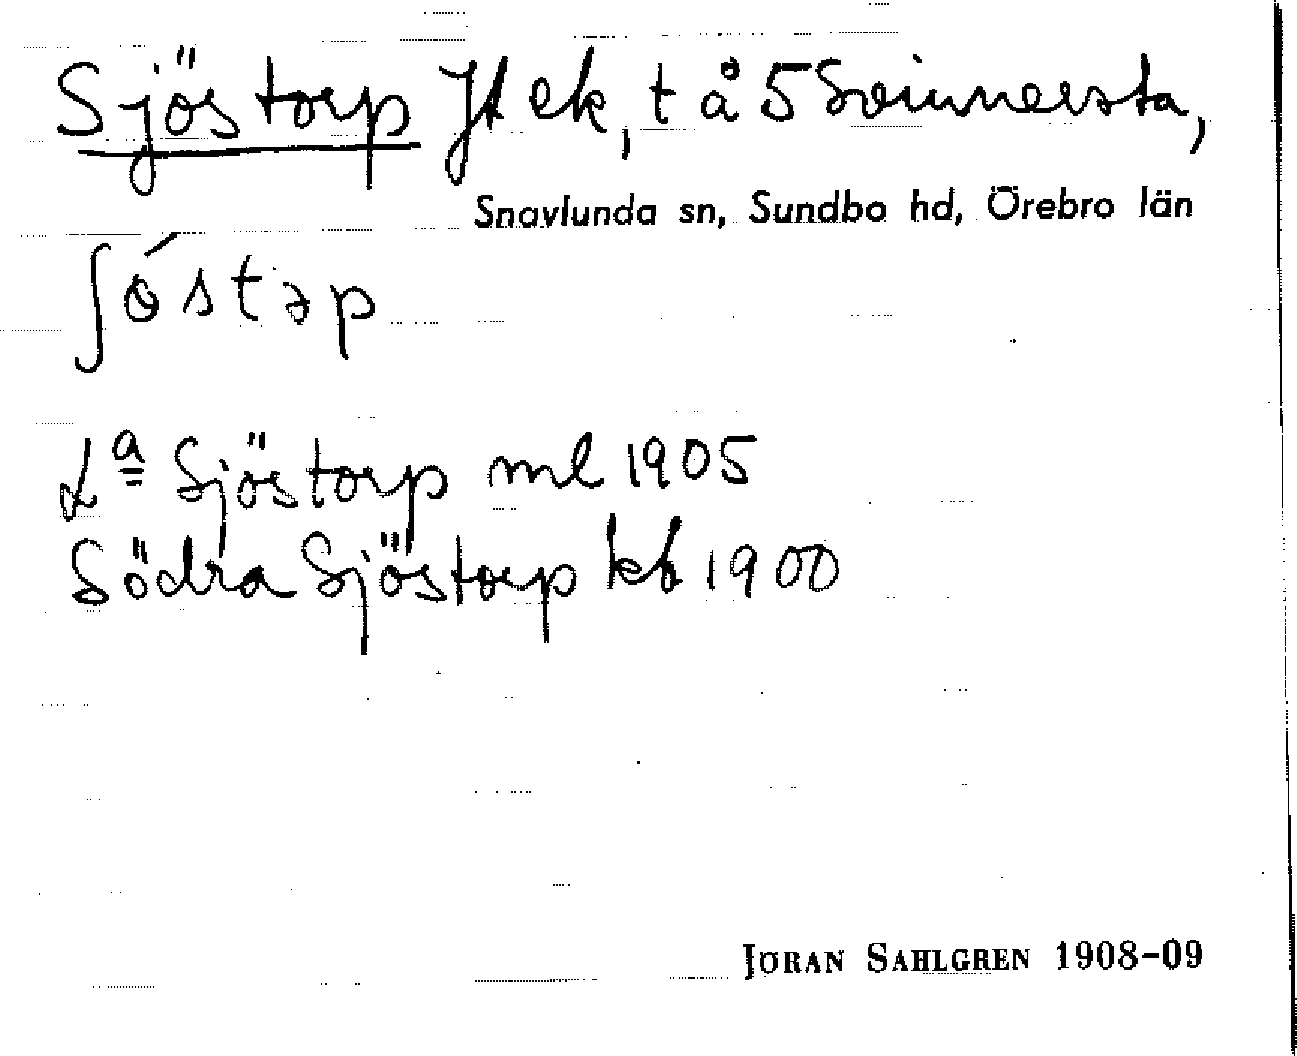 Sjöstorp Jt ek, t å 5 Svinnersta,
Snavlunda sn, Sundbo hd, Örebro län
ʃöstəp
La Sjöstorp ml 1905
Södra Sjöstorp kb 1900
JÖRAN SAHLGREN 1908-09